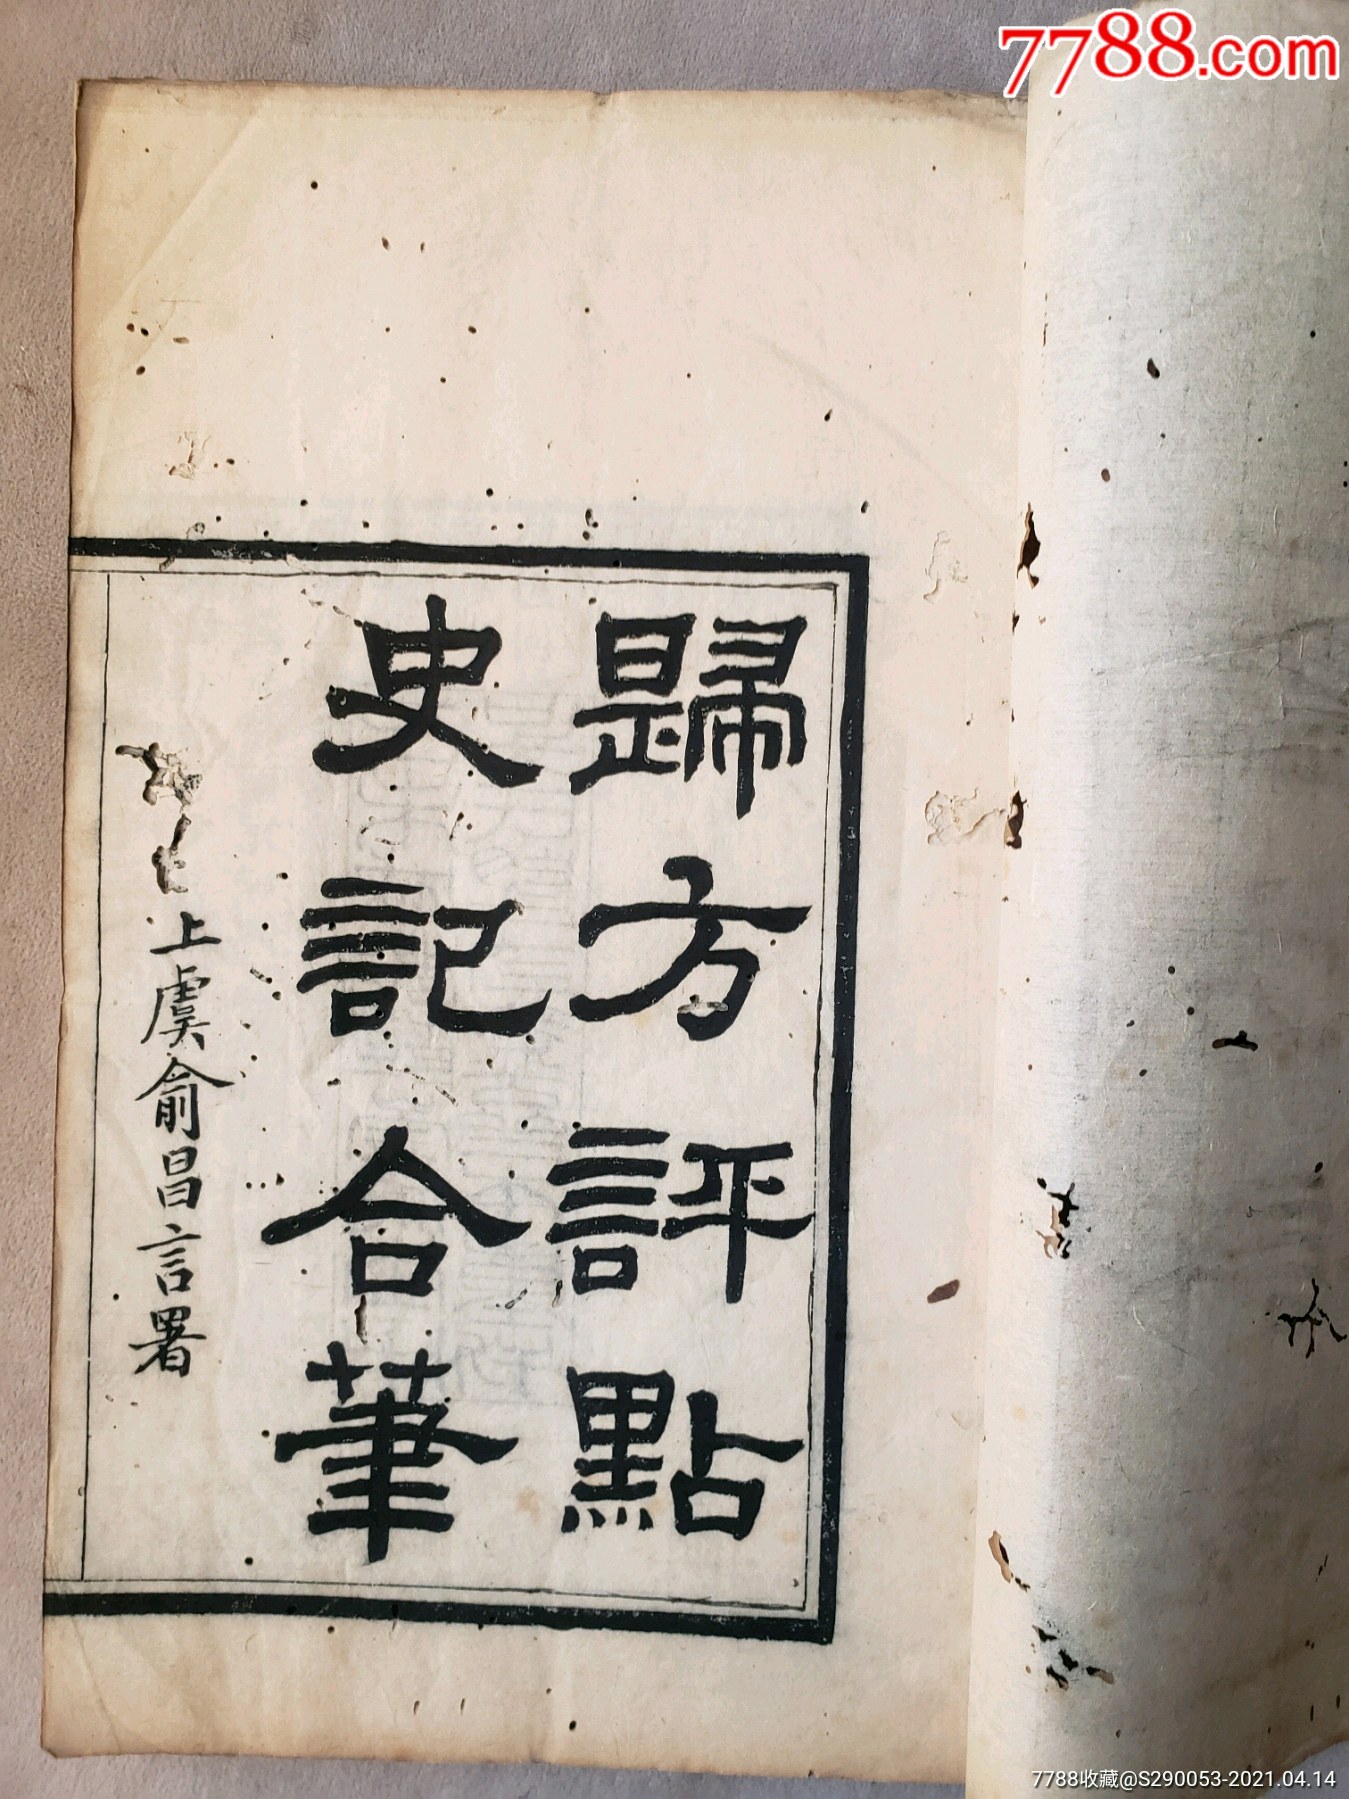 7788.com
歸方評點
史記合筆
上虞俞昌言署
7788收藏@S290053-2021.04.14